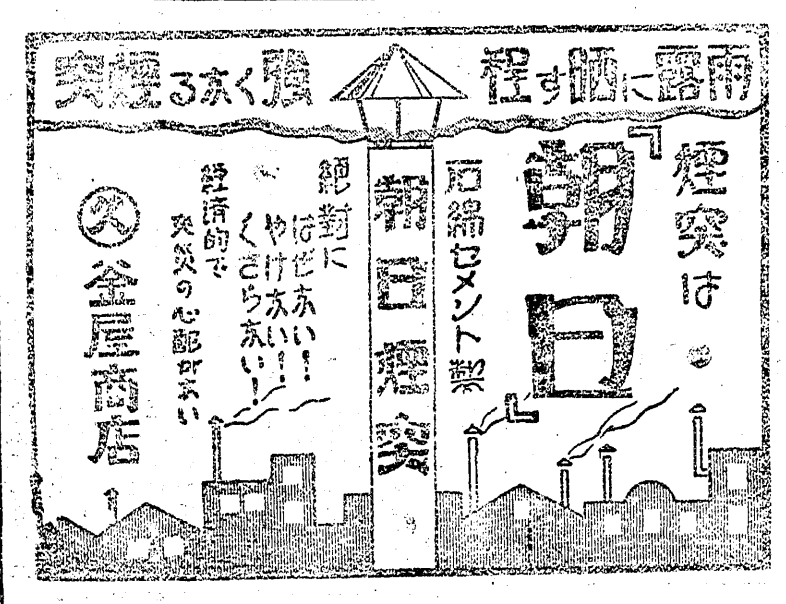 雨露に晒す程強くなる煙突
煙突は
「朝日」
石綿セメント製
朝日煙突
絶對に
はぜない!
やけない!
くさらない!
経済的で
火災の心配がない
釜屋商店